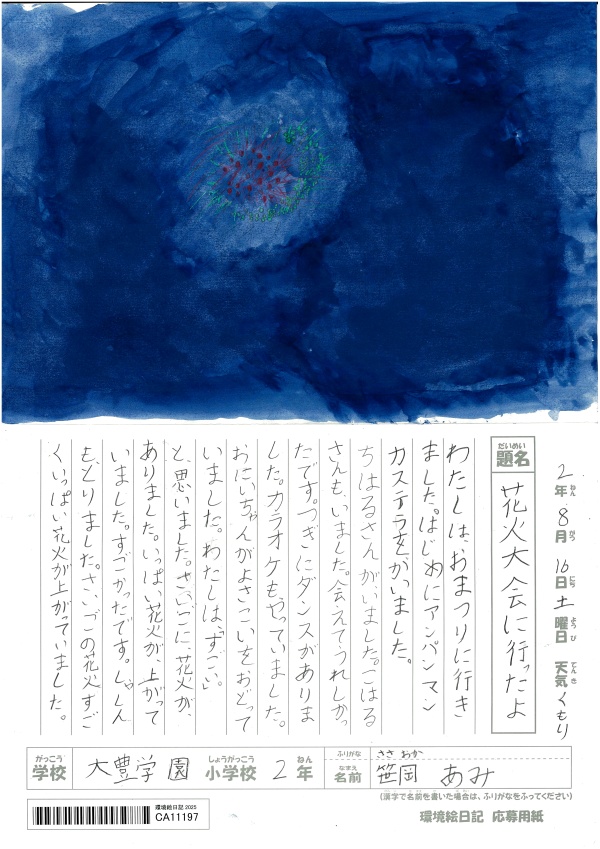 2年 8月 16日 土曜日 天気 くもり
ねん がつ にち ようび てんき
だいめい
題名 花火大会に行ったよ
わたしは、おまつりに行き
ました。はじめにアンパンマン
カステラをかいました。
ちはるさんがいました。こはる
さんも、いました。会えてうれしかっ
たです。つぎにダンスがありま
した。カラオケもやっていました。
おにいちゃんがよさこいをおどって
いました。わたしは、「すごい」
と、思いました。さいごに、花火が、
ありました。いっぱい花火が、上がって
いました。すごかったです。しゃしん
も、とりました。さいごの花火、すご
くいっぱい花火が上がっていました。
がっこう しょうがっこう ねん
学校 大豊学園 小学校 2年
ふりがな ささ おか
なまえ
名前 笹岡 あみ
(漢字で名前を書いた場合は、ふりがなをふってください)
環境絵日記 2025
CA11197
環境絵日記 応募用紙